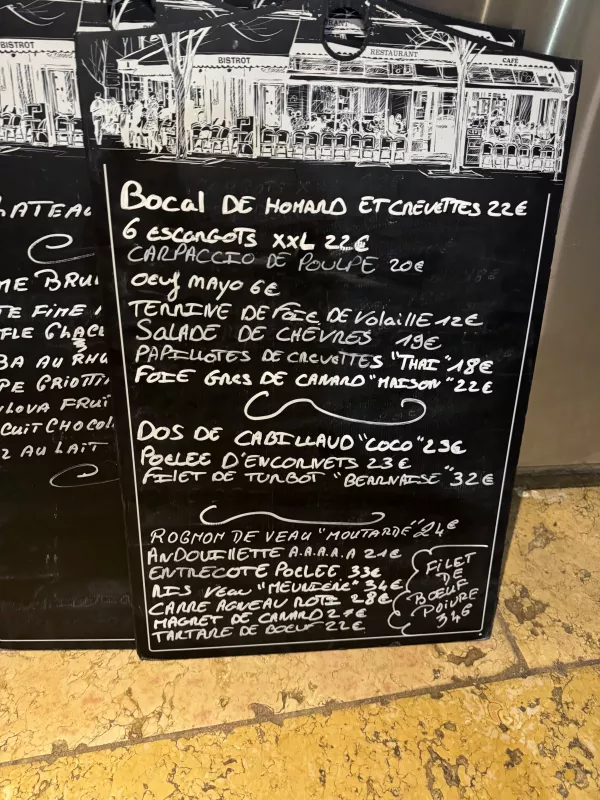 BISTROT
BISTROT
RESTAURANT
CAFÉ
BOCAL DE HOMARD ET CREVETTES 22€
6 ESCARGOTS XXL 22€
CARPACCIO DE POULPE 20€
OEUF MAYO 6€
TERRINE DE FOIE DE VOLAILLE 12€
SALADE DE CHÈVRES 19€
PAPILLOTES DE CREVETTES "THAI" 18€
FOIE GRAS DE CANARD "MAISON" 22€
DOS DE CABILLAUD "COCO" 23€
POELEE D'ENCORNETS 23€
FILET DE TURBOT "BEARNAISE" 32€
ROGNON DE VEAU "MOUTARDE" 24€
ANDOUILLETTE A.A.A.A.A 21€
ENTRECOTE POELEE 33€
RIS VEAU "MEUNIÈRE" 34€
CARRE AGNEAU ROTI 28€
MAGRET DE CANARD 27€
TARTARE DE BOEUF 22€
FILET
DE
BOEUF
POIVRE
34€
ME BRU
TE FINE
AU RHU
PE GRIOTTI
LOVA FRUI
CUIT CHOCOL
2 AU LAIT